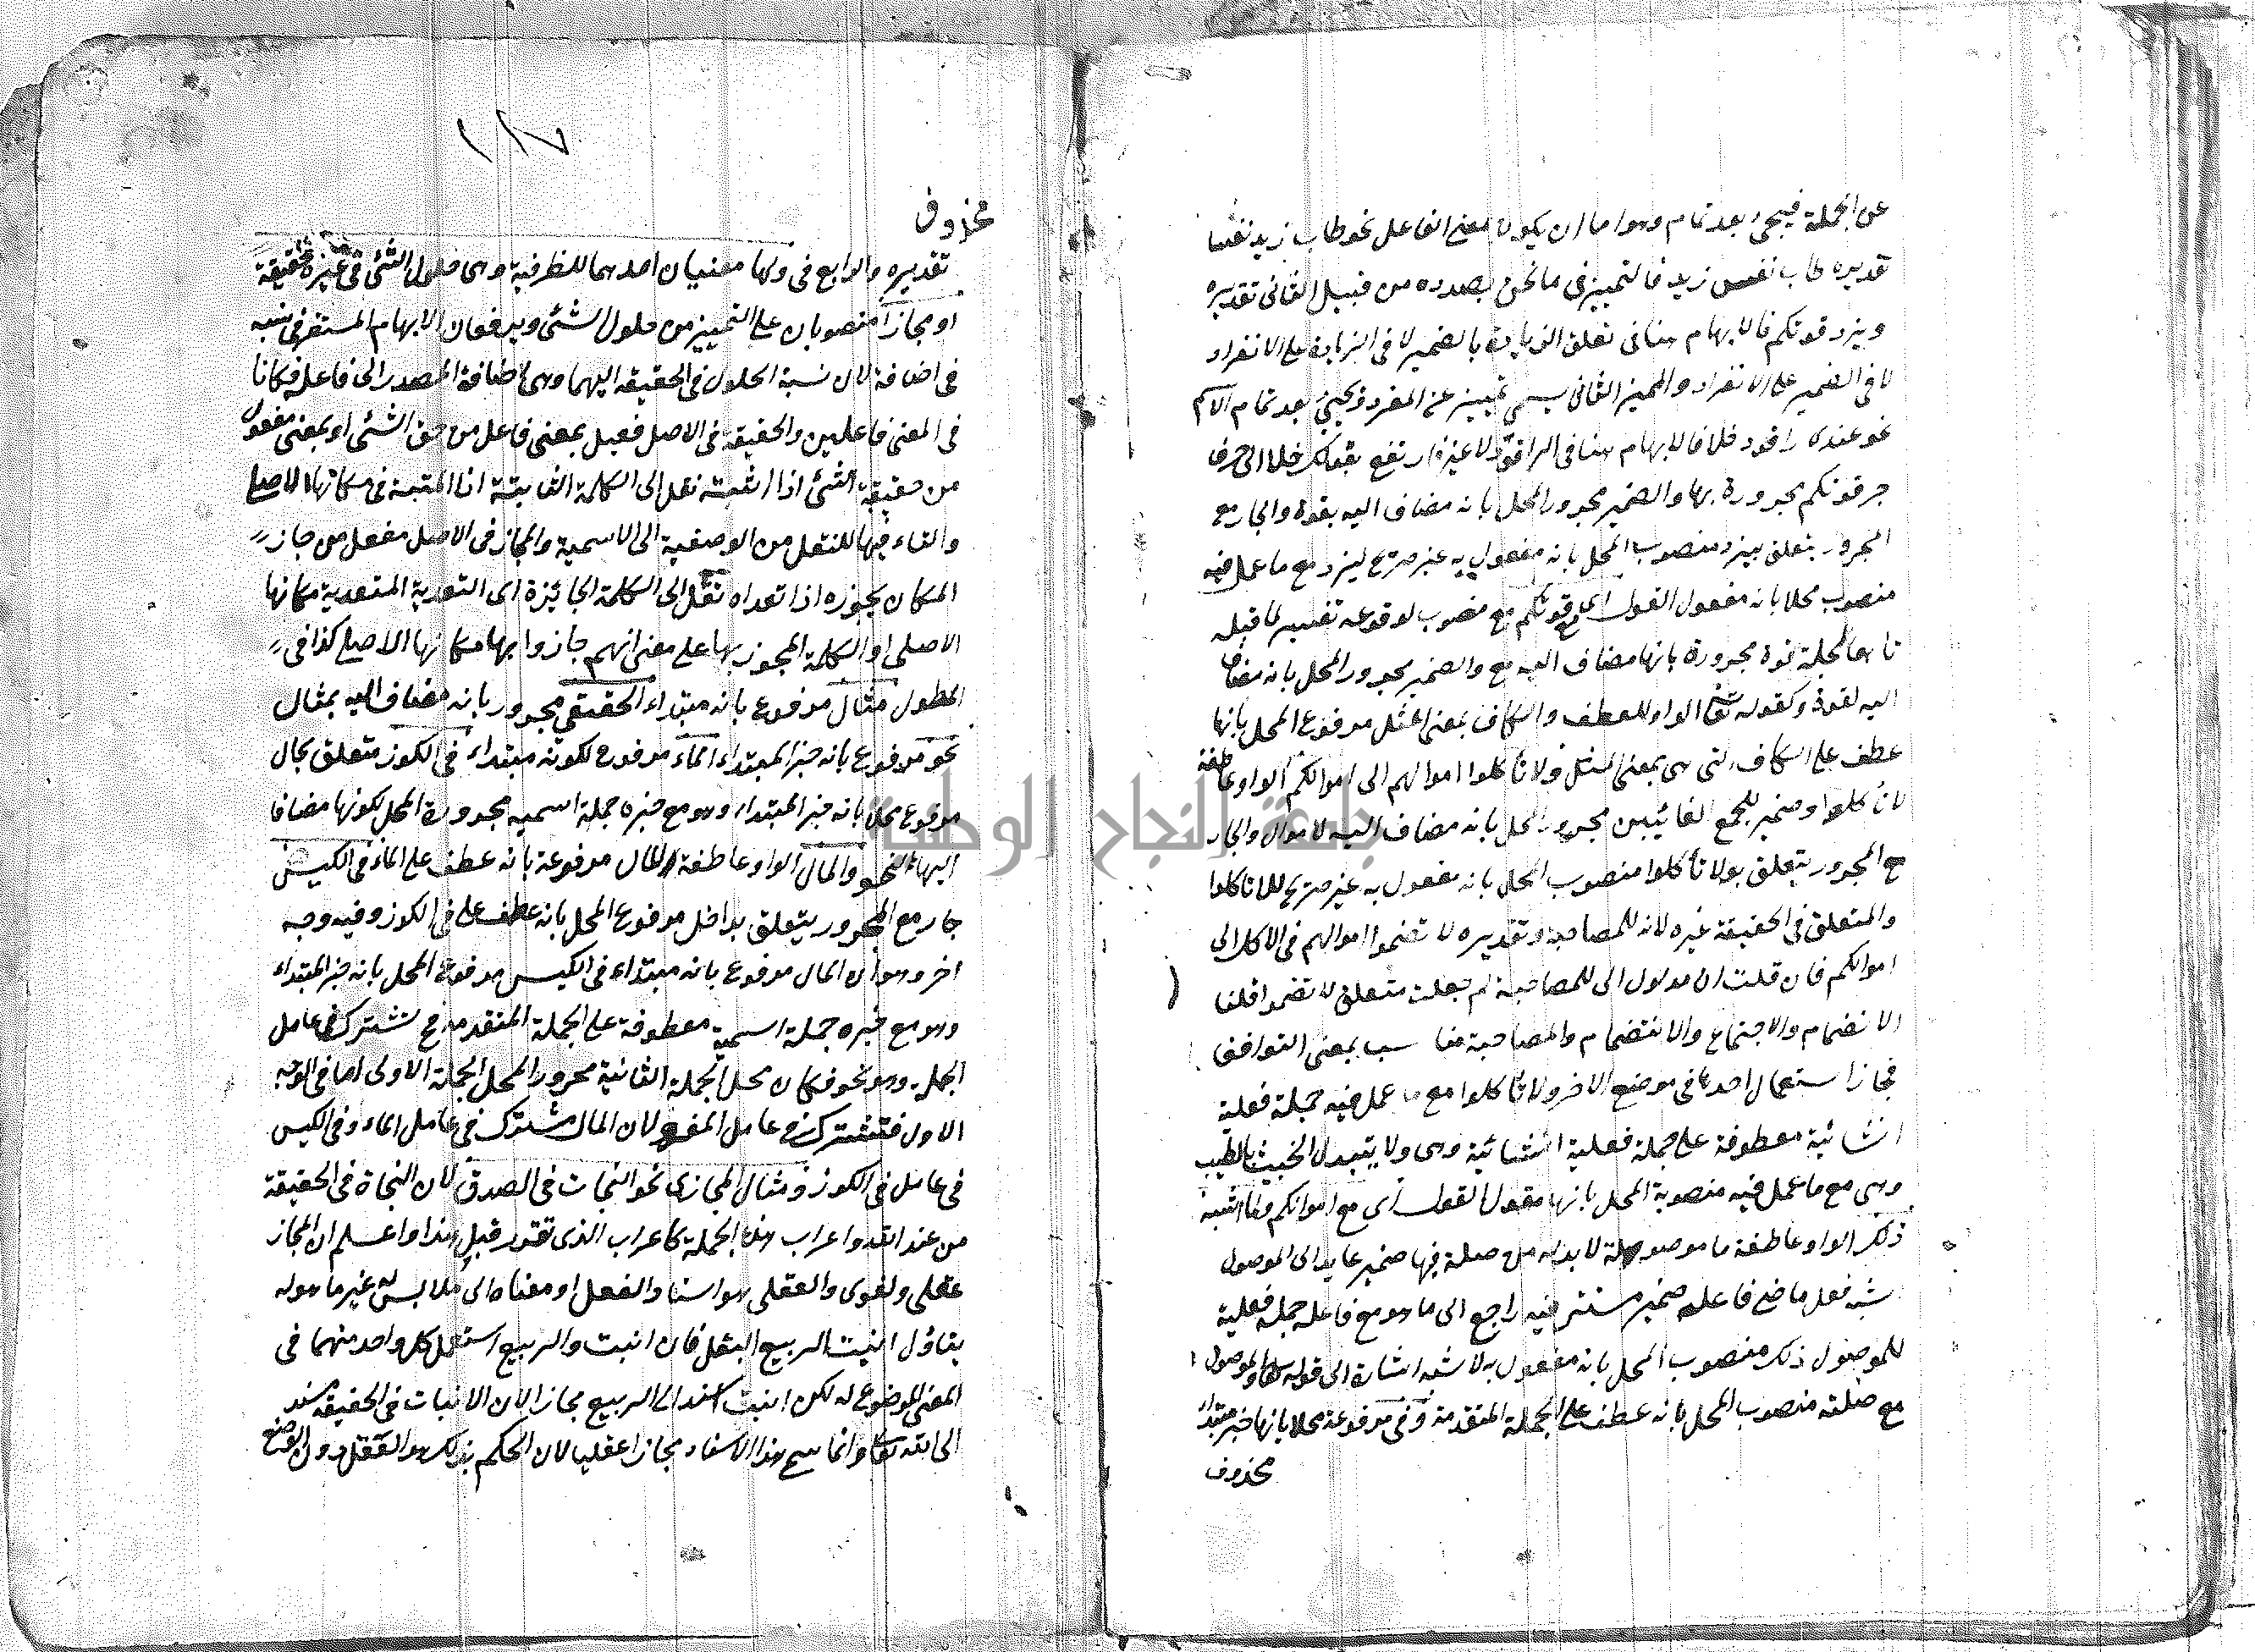 عن الجملة فيجئ بعد تمام وهو اما ان يكون بمعنى الفاعل نحو طاب زيد نفسا
تقديره طاب نفس زيد فالتمييز فى ما نحن بصدده من قبيل الثانى تقديره
ويزد قوتكم فالابهام هنا فى تعلق الزيادة بالضمير لا فى الزيادة على الانفراد
لا فى الضمير على الانفراد والمميز الثانى يسمى تمييز عن المفرد ويجئ بعد تمام الاسم
نحو عندى راقود خلا فالابهام هنا فى الراقود لا غير وارتفع بقولك خلا الى حرف
جر قوتكم مجرورة بها والضمير مجرور المحل بانه مضاف اليه بقوة والجار مع
المجرور يتعلق بيزد منصوب المحل بانه مفعول به غير صريح ليزد مع ما عمل فيه
منصوب محلا بانه مفعول القول اى مع قوتكم مع منصوب لوقوعه تفسير لما قبله
تابعا لمحله قوة مجرورة بانها مضاف اليه مع والضمير مجرور المحل بانه مضاف
اليه لقوة وكقوله تعا الواو للعطف والكاف بمعنى المثل مرفوع المحل بانها
عطف على الكاف التى هى بمعنى المثل ولا تأكلوا اموالهم الى اموالكم الواو عاطفة
لا تأكلوا وضمير للجمع الغائبين مجرور المحل بانه مضاف اليه لاموال والجار
مع المجرور يتعلق بولا تأكلوا منصوب المحل بانه مفعول به غير صريح للا تأكلوا
والمتعلق فى الحقيقة غيره لانه للمصاحبة وتقديره لا تضموا اموالهم فى الاكل الى
اموالكم فان قلت ان مدلول الى للمصاحبة لم جعلت متعلق لا تضموا قلنا
الانضمام والاجتماع والانتضمام والمصاحبة مناسب بمعنى التوافق
فجاز استعمال احدها فى موضع الاخر ولا تأكلوا مع ما عمل فيه جملة فعلية
انشائية معطوفة على جملة فعلية انشائية وهى ولا يتبدل الخبيث بالطيب
وهى مع ما عمل فيه منصوبة المحل بانها مقول القول اى مع اموالكم وما اشبه
ذلك الواو عاطفة ما موصولة لا بد له من صلة فيها ضمير عايد الى الموصول
شبه فعل ماض فاعله ضمير مستتر فيه راجع الى ما وهو مع فاعله جملة فعلية
للموصول ذلك منصوب المحل بانه مفعول به لاشبه اشارة الى قوله والموصول
مع صلته منصوب المحل بانه عطف على الجملة المتقدمة وفى مرفوعة محلا بانها خبر مبتداء
محذوف
١١٧
محذوف
تقديره والرابع فى ولها معنيان احدهما للظرفية وهى حلول الشئ فى غيره حقيقة
او مجازا منصوبان على التمييز من حلول الشئ ويرفعان الابهام المستقر فى نسبه
فى اضافة لان نسبة الحلول فى الحقيقة اليهما وهى اضافة المصدر الى فاعله فكانا
فى المعنى فاعلين والحقيقة فى الاصل فعيل بمعنى فاعل من حق الشئ او بمعنى مفعول
من حقيقة الشئ اذا اثبته نقل الى الكلمة الثابتة اذا المثبتة فى مكانها الاصلى
والتاء فيها للنقل من الوصفية الى الاسمية والمجاز فى الاصل مفعل من جاز
المكان يجوزه اذا تعداه نقل الى الكلمة الجائزة اى التعدية المتعدية مكانها
الاصلى او الكلمة المجوز بها على معنى انهم جازوا بها مكانها الاصلى كذا فى
المطول مثال مرفوع بانه مبتداء الحقيقى مجرور بانه مضاف اليه بمثال
نحو مرفوع بانه خبر المبتداء الماء مرفوع لكونه مبتداء فى الكوز متعلق بحال
مرفوع محلا بانه خبر المبتداء وهو مع خبره جملة اسمية مجرورة المحل لكونها مضافا
اليها لنحو والمال الواو عاطفة المال مرفوعة بانه عطف على الماء فى الكيس
جار مع المجرور يتعلق بداخل مرفوع المحل بانه عطف على فى الكوز وفيه وجه
اخر وهو ان المال مرفوع بانه مبتداء فى الكيس مرفوع المحل بانه خبر المبتداء
وهو مع خبره جملة اسمية معطوفة على الجملة المتقدمة مع تشترك فى عامل
الجملة وهو نحو فكان محل الجملة الثانية مجرور المحل الجملة الاولى اما فى الوجه
الاول فتشترك فى عامل المفرد لان المال مشترك فى عامل الماء وفى الكيس
فى عامل فى الكوز ومثال المجازى نحو النجات فى الصدق لان النجاة فى الحقيقة
من عند الله واعراب هذه الجملة كاعراب الذى تقرر قبل هذا واعلم ان المجاز
عقلى ولغوى والعقلى هو اسناد الفعل او معناه الى ملابس له غير ما هو له
بتاول انبت الربيع البقل فان انبت والربيع استعمل كل واحد منهما فى
المعنى الموضوع له لكن انبت اسند الى الربيع مجازا لان الانبات فى الحقيقة مسند
الى الله تعا وانما سمى هذا الاسناد مجازا عقليا لان الحكم بذلك هو العقل دون الوضع